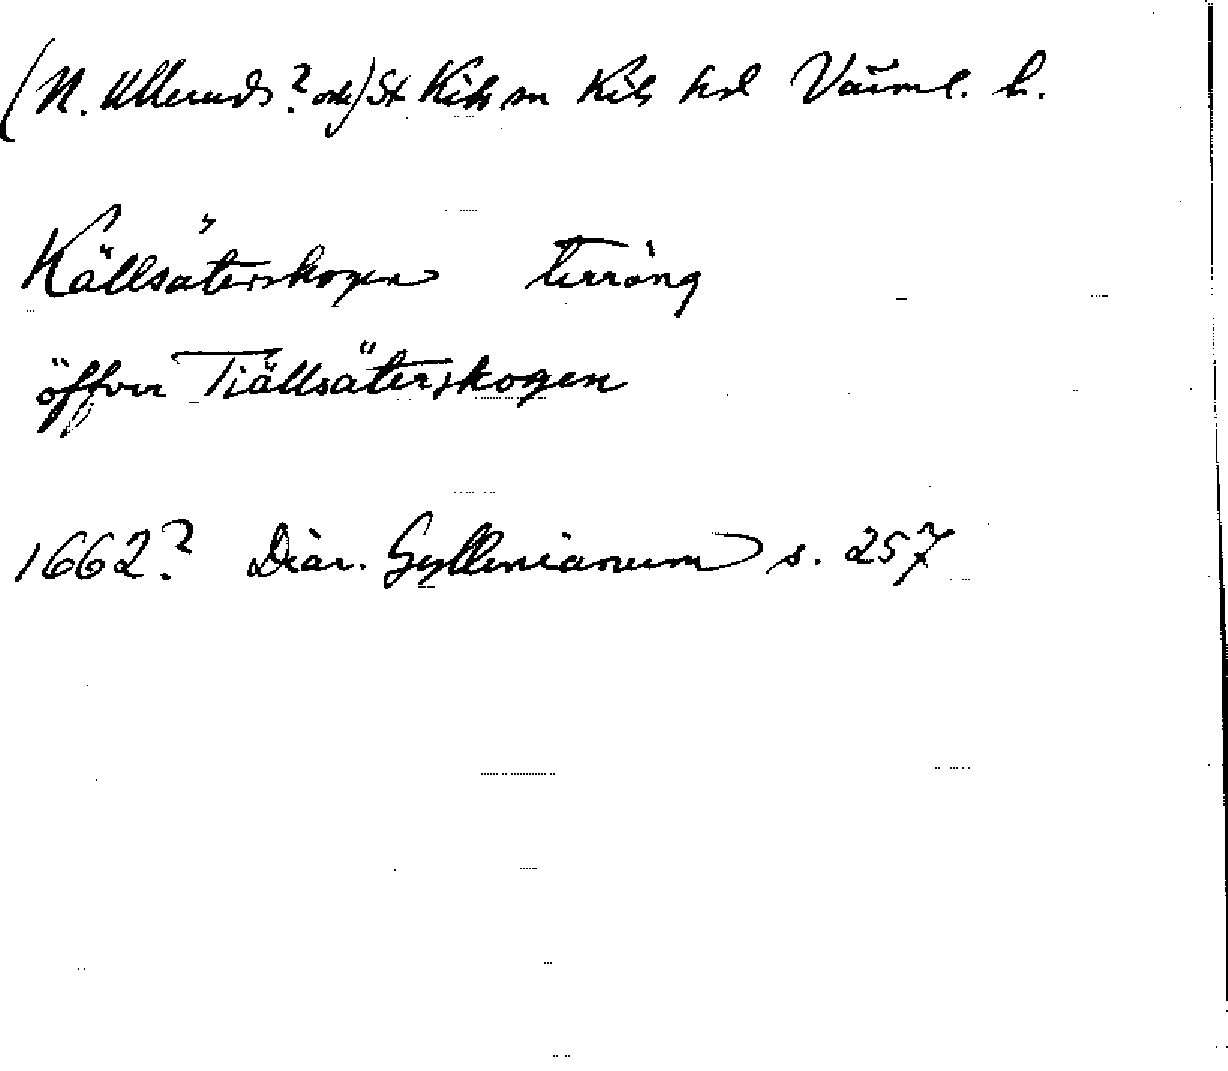 (N. Ulleruds? och) St Kils sn Kils hd Värml. l.
Källsäterskogen terräng
öffver Tiällsäterskogen
1662? Diar. Gyllenianum s. 257